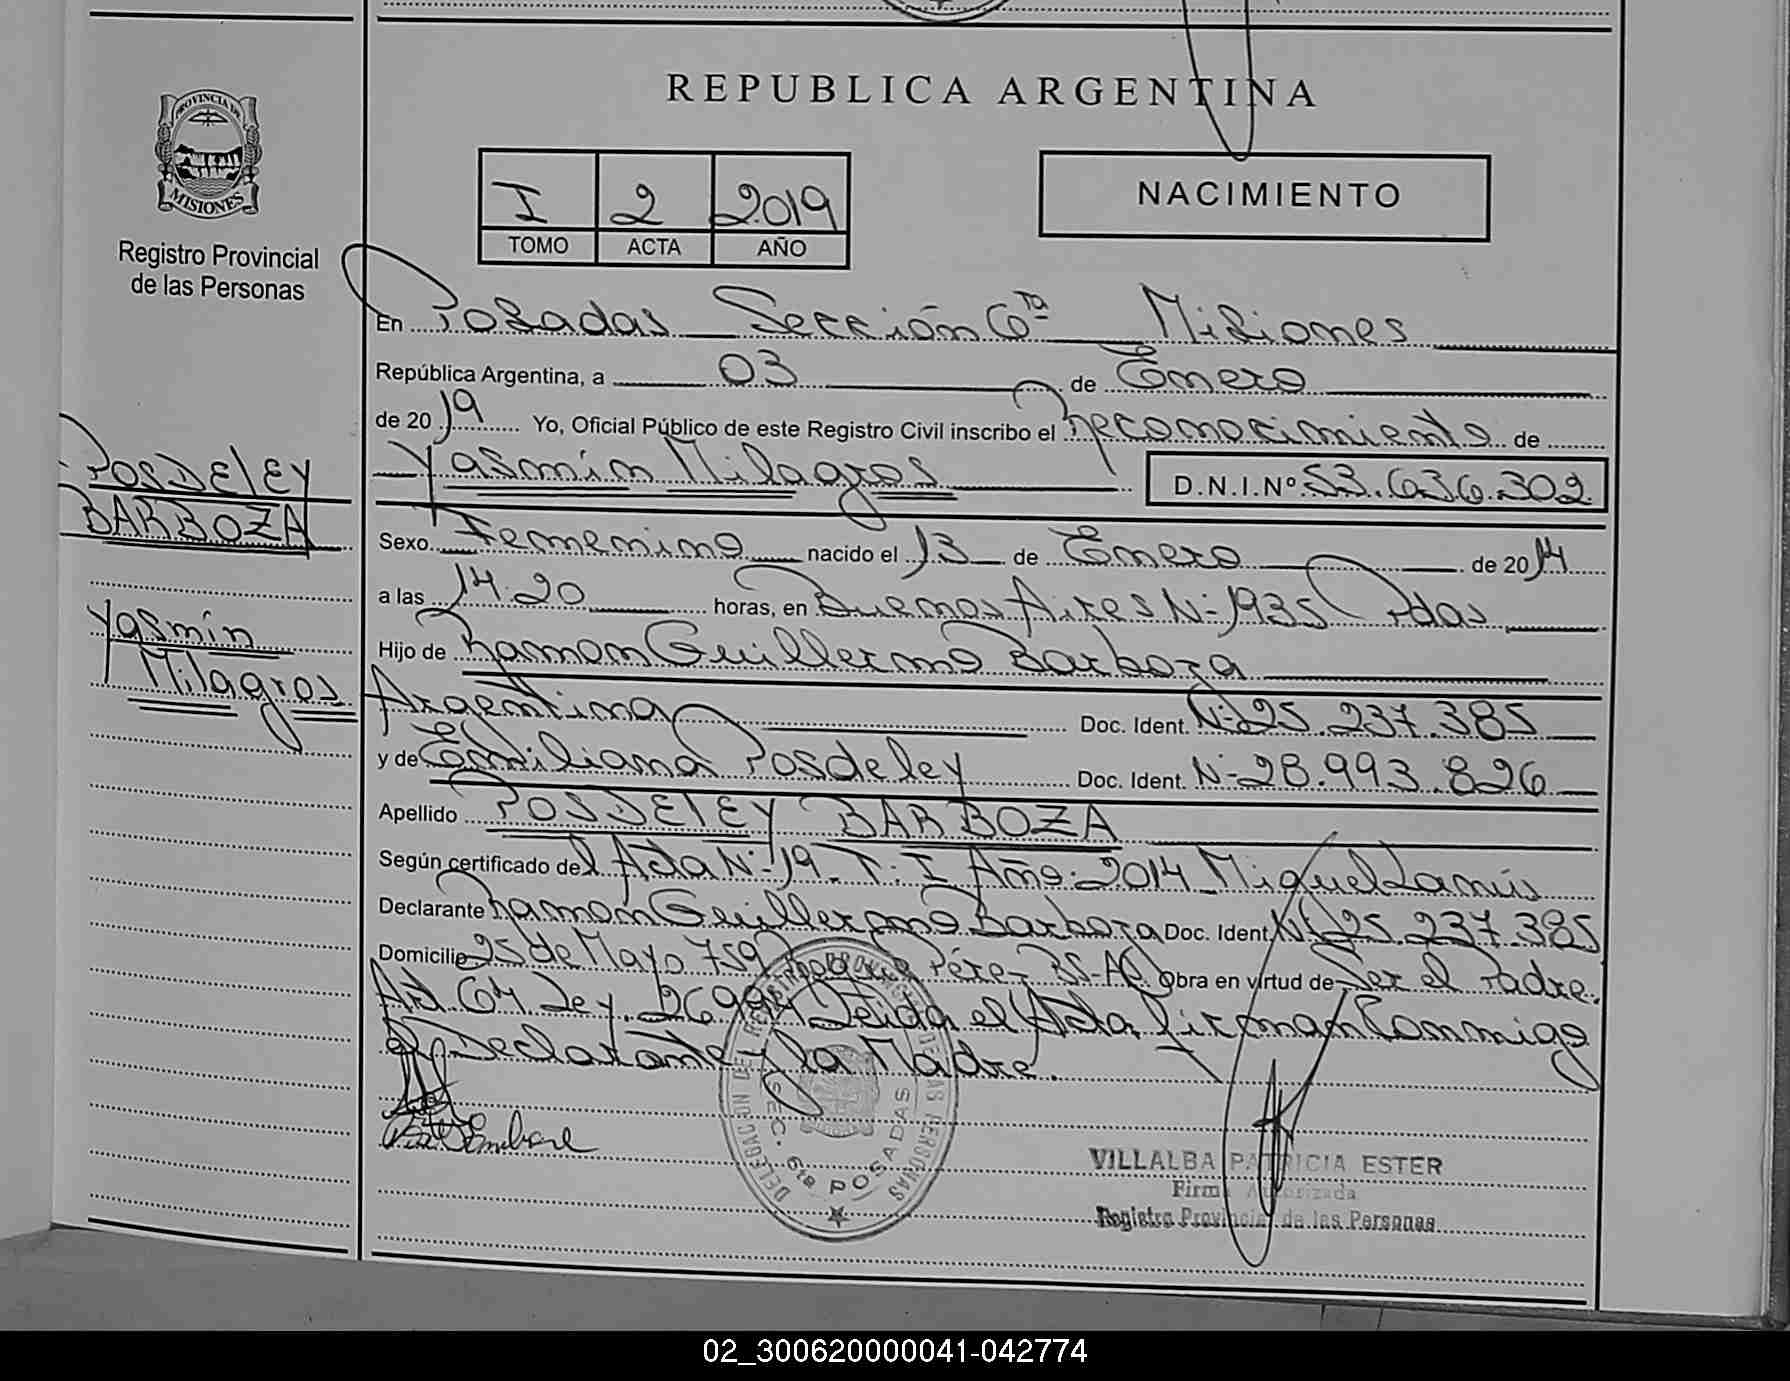 REPUBLICA ARGENTINA
PROVINCIA DE
MISIONES
Registro Provincial
de las Personas
I 2 2019
TOMO ACTA AÑO
NACIMIENTO
En Posadas Sección 6ta Misiones
República Argentina, a 03 de Enero
de 2019 Yo, Oficial Público de este Registro Civil inscribo el Reconocimiento de
Yasmín Milagros D.N.I.Nº 53.636.302
POSDELEY
BARBOZA
Yasmín
Milagros
Sexo Femenino nacido el 13 de Enero de 2014
a las 14:20 horas, en Buenos Aires Nº 1935 Pdas
Hijo de Ramon Guillermo Barboza
Argentina Doc. Ident. Nº 25.237.385
y de Emiliana Posdeley Doc. Ident. Nº 28.993.826
Apellido POSDELEY BARBOZA
Según certificado del Acta Nº 19 T: I Año: 2014 Miguel Lanús
Declarante Ramon Guillermo Barboza Doc. Ident. Nº 25.237.385
Domicilio 25 de Mayo 759 Pérez Bs-As Obra en virtud de Ser el Padre.
Art 64 Ley 26994 Leída el Acta firman Conmigo
el Declarante y la Madre.
DELEGACION DEL REGISTRO PROVINCIAL DE LAS PERSONAS
SEC. 6ta POSADAS
VILLALBA PATRICIA ESTER
Firma Autorizada
Registro Provincial de las Personas
02_300620000041-042774